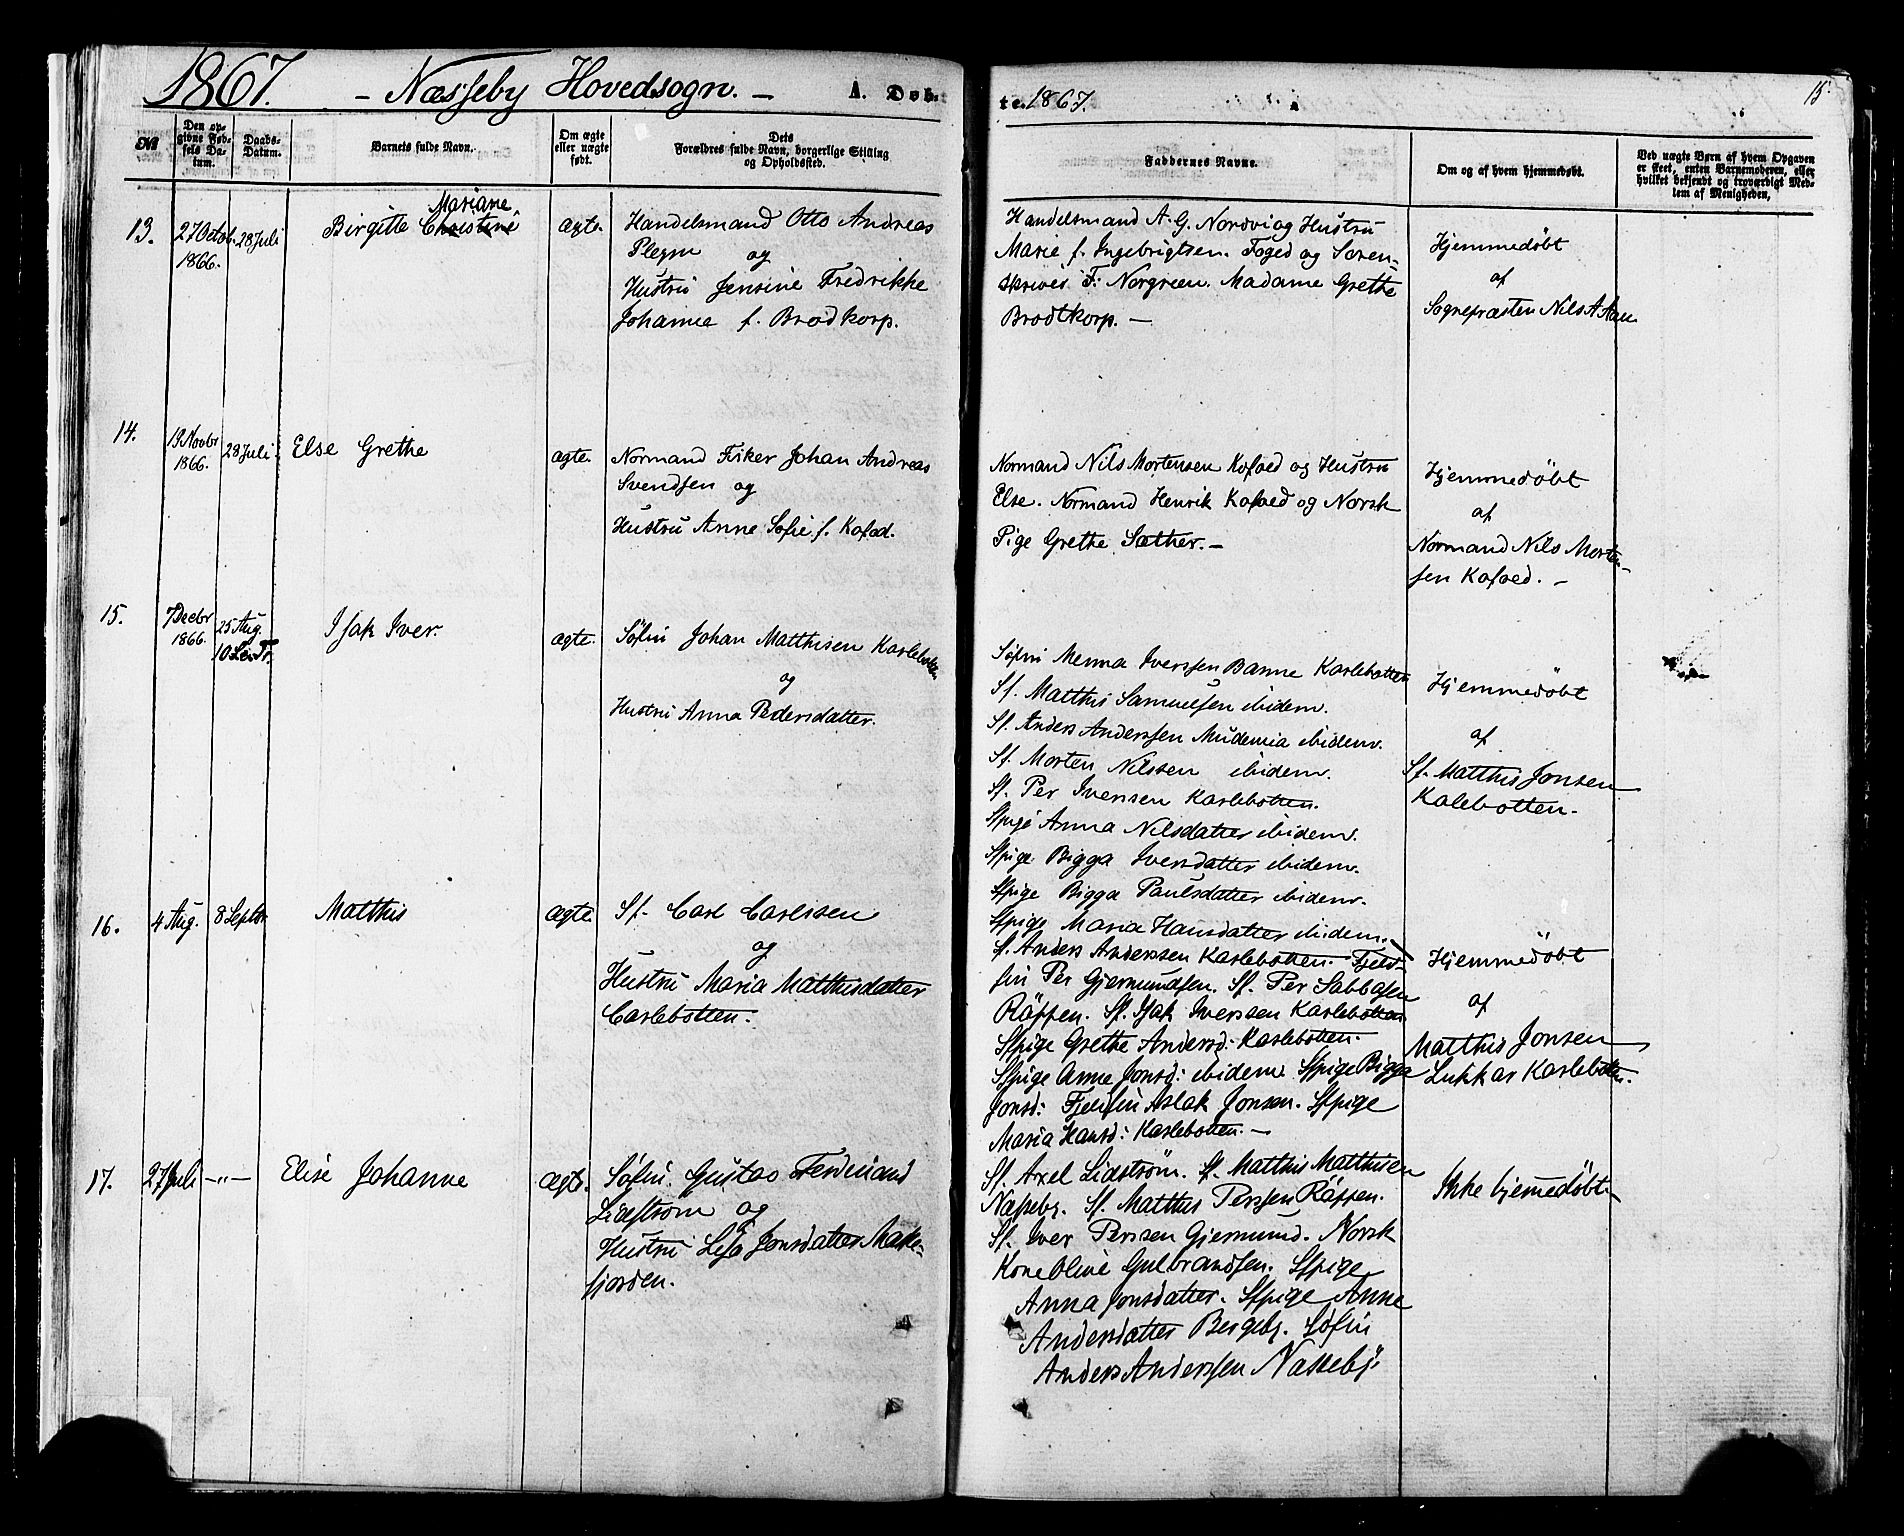 1867. - Næsseby Hovedsogn. - A. Døb-
te. 1867. 15.
№
Den opgivne Fødsels Datum.
Daabs-Datum.
Barnets fulde Navn.
Om ægte eller uægte født.
Dets Forældres fulde Navn, borgerlige Stilling og Opholdssted.
Faddernes Navne.
Om og af hvem hjemmedøbt.
Ved uægte Børn af hvem Opgaven
er skeet, enten Barnemoderen, eller
hvilket bekjendt og troværdigt Med-
lem af Menigheden,
13.
27 Octob.
1866.
28 Juli
Mariane
Birgitte Christine
ægte.
Handelsmand Otto Andreas
Pleym og
Hustru Jensine Fredrikke
Johanne f. Brodkorp.
Handelsmand A. G. Nordvi og Hustru
Marie f. Ingebrigtsen. Foged og Soren-
skriver F. Norgreen. Madame Grethe
Brodtkorp. -
Hjemmedøbt
af
Sognepræsten Nils A Aau
14.
19 Novbr
1866.
28 Juli
Else Grethe
ægte.
Normand Fisker Johan Andreas
Svendsen og
Hustru Anne Sofie f. Kofod.
Normand Nils Mortensen Kofoed og Hustru
Else. Normand Henrik Kofoed og Norsk
Pige Grethe Sæther. -
Hjemmedøbt
af
Normand Nils Morten-
sen Kofoed. -
15.
7 Decbr
1866.
25 Aug.
10 S. e. Tr.
Isak Iver.
ægte.
Søfin Johan Matthisen Karlebotten
og
Hustru Anna Pedersdatter.
Søfin Menna Iverssen Banne Karlebotten
Sf. Matthis Samuelsen ibidem.
Sf. Anders Anderssen Mudenia ibidem.
Sf. Morten Nilssen ibidem.
Sf. Per Iverssen Karlebotten.
Sfpige Anna Nilsdatter ibidem.
Sfpige Bigga Iversdatter ibidem.
Sfpige Bigga Paulsdatter ibidem.
Sfpige Maria Hansdatter ibidem.
Hjemmedøbt
af
Sf. Matthis Jonsen
Kalebotten.
16.
4 Aug.
8 Septbr
Matthis
ægte.
Sf. Carl Carlsen
og
Hustru Maria Matthisdatter
Carlebotten.
Sf. Anders Anderssen Karlebotten. Fjeld-
fin Per Gjermundsen. Sf. Per Sabbasen
Räppen. Sf. Isak Iverssen Karlebotten
Sfpige Grethe Andersd: Karlebotten.
Sfpige Anne Jonsd: ibidem. Sfpige Bigga
Jonsd: Fjeldfin Aslak Jonsen. Sfpige
Maria Hansd: Karlebotten. -
Hjemmedøbt
af
Matthis Jonsen
Lukkar Karlebotten.
17.
27 Juli
-"-
Elise Johanne
ægte.
Søfin. Gustav Ferdinand
Lidstrøm og
Hustru Lisa Jonsdatter Make-
fjorden.
Sf. Axel Lidstrøm. Sf. Matthis Matthisen
Næsseby. Sf. Matthis Perssen Räppen.
Sf. Iver Perssen Gjermund. Norsk
Kone Oline Gulbrandsen. Sfpige
Anna Jonsdatter. Sfpige Anne
Andersdatter Bergeby. Søfin
Anders Anderssen Næsseby.
Ikke hjemmedøbt